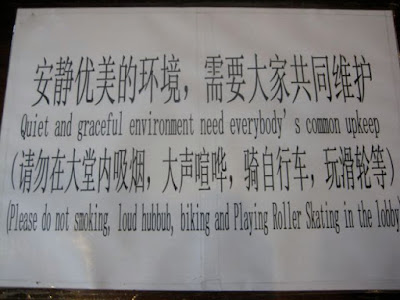 安静优美的环境，需要大家共同维护
Quiet and graceful environment need everybody's common upkeep
（请勿在大堂内吸烟，大声喧哗，骑自行车，玩滑轮等）
(Please do not smoking, loud hubbub, biking and Playing Roller Skating in the lobby